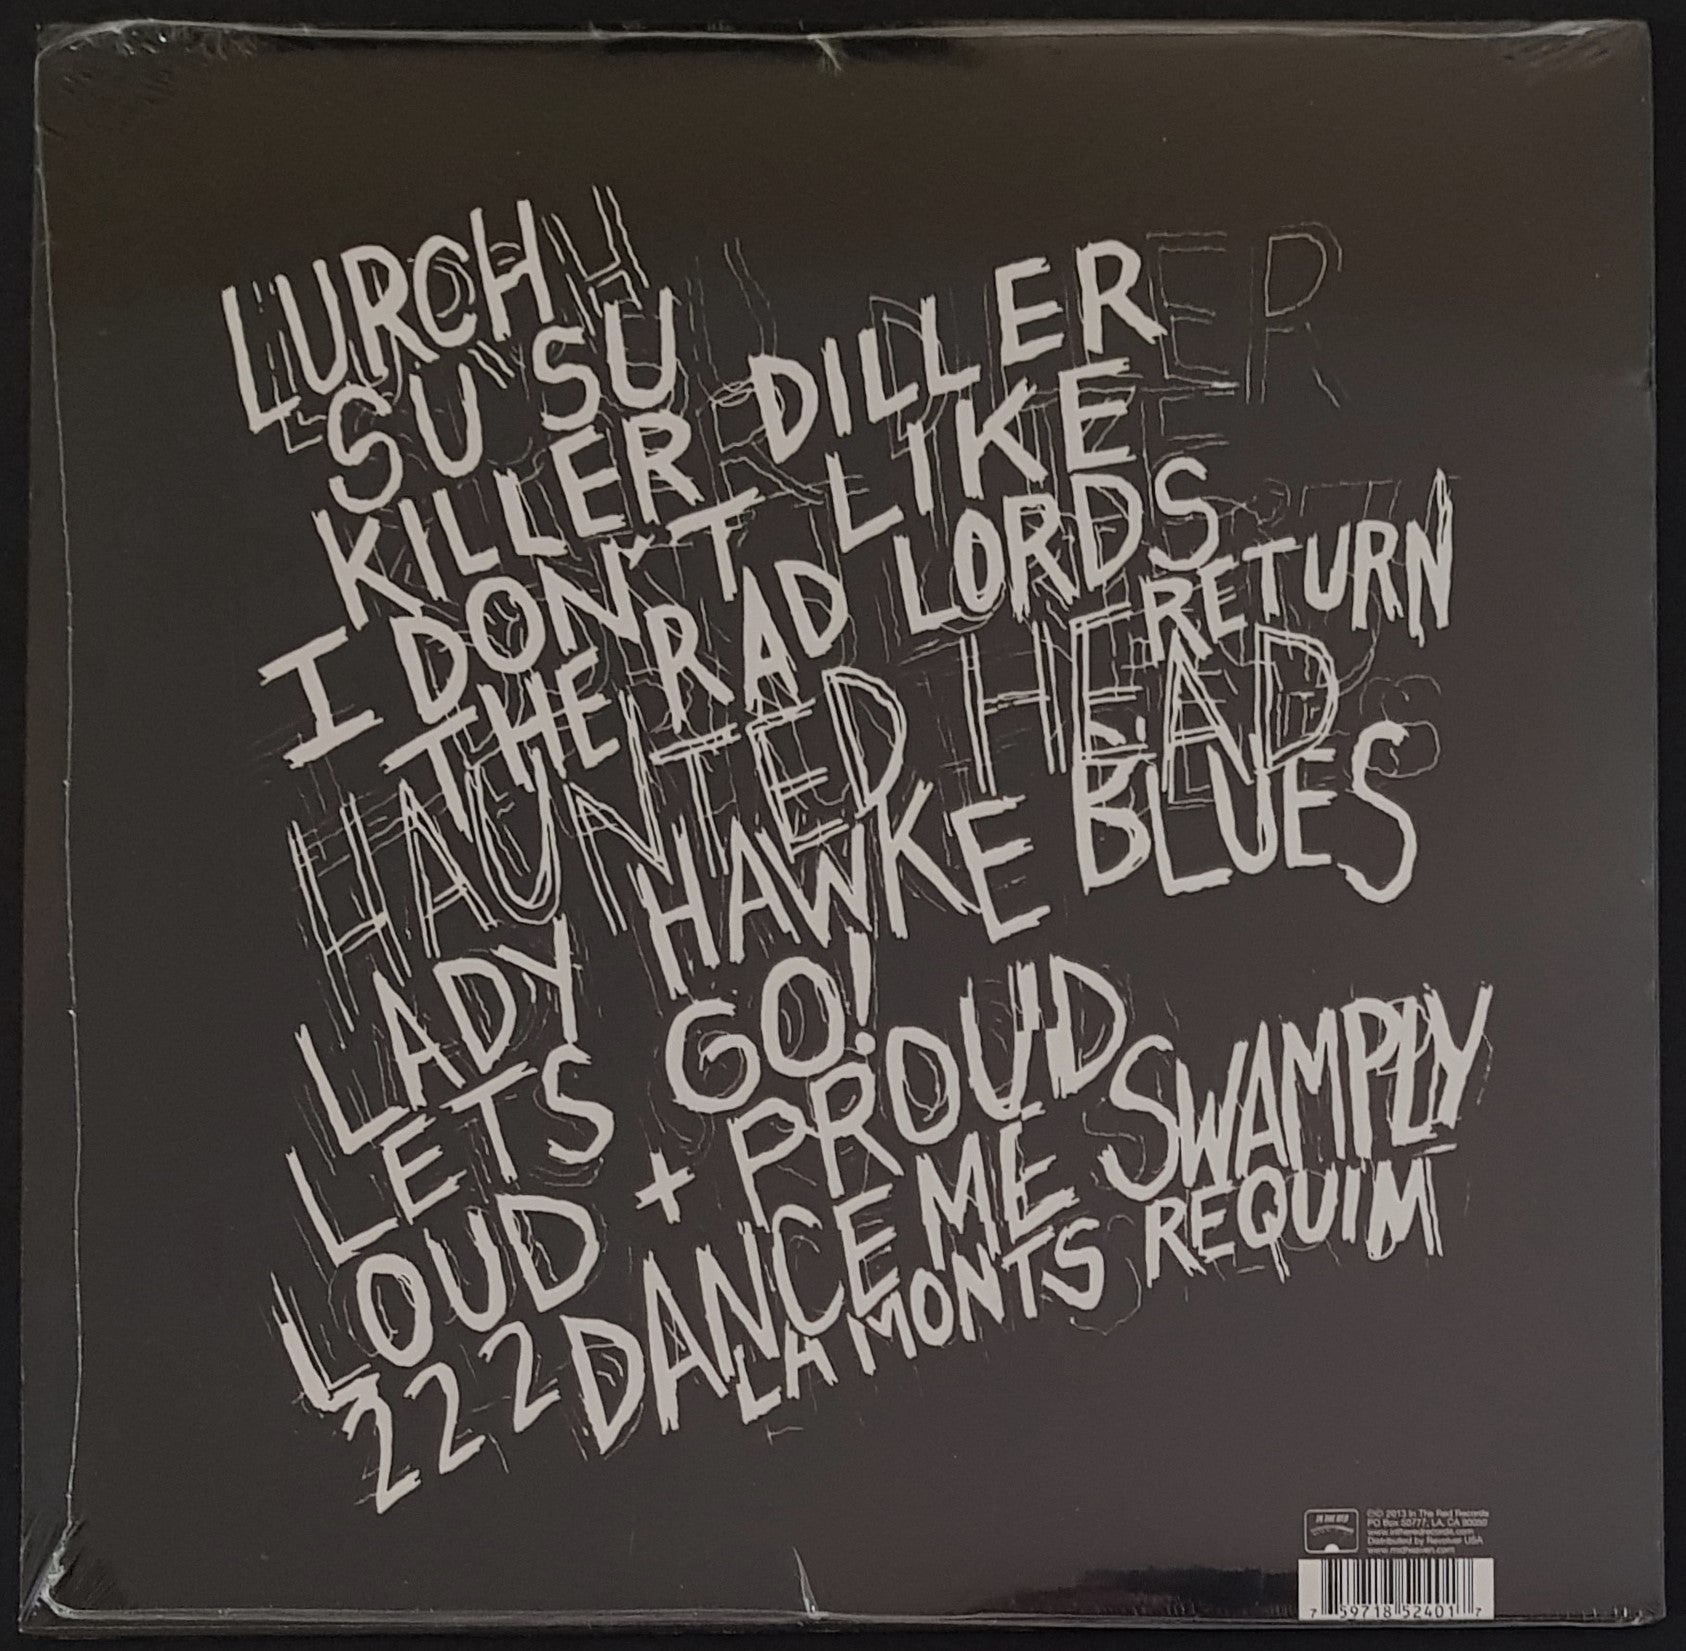 LURCH
SU SU
KILLER DILLER
I DON'T LIKE
THE RAD LORDS RETURN
HAUNTED HEAD
LADY HAWKE BLUES
LETS GO!
LOUD + PROUD
222 DANCE ME SWAMPLY
LA MONTS REQUIM
IN THE RED
℗© 2013 In The Red Records
PO Box 50777, LA, CA 90050
www.intheredrecords.com
Distributed by Revolver USA
www.midheaven.com
7 59718 52401 7